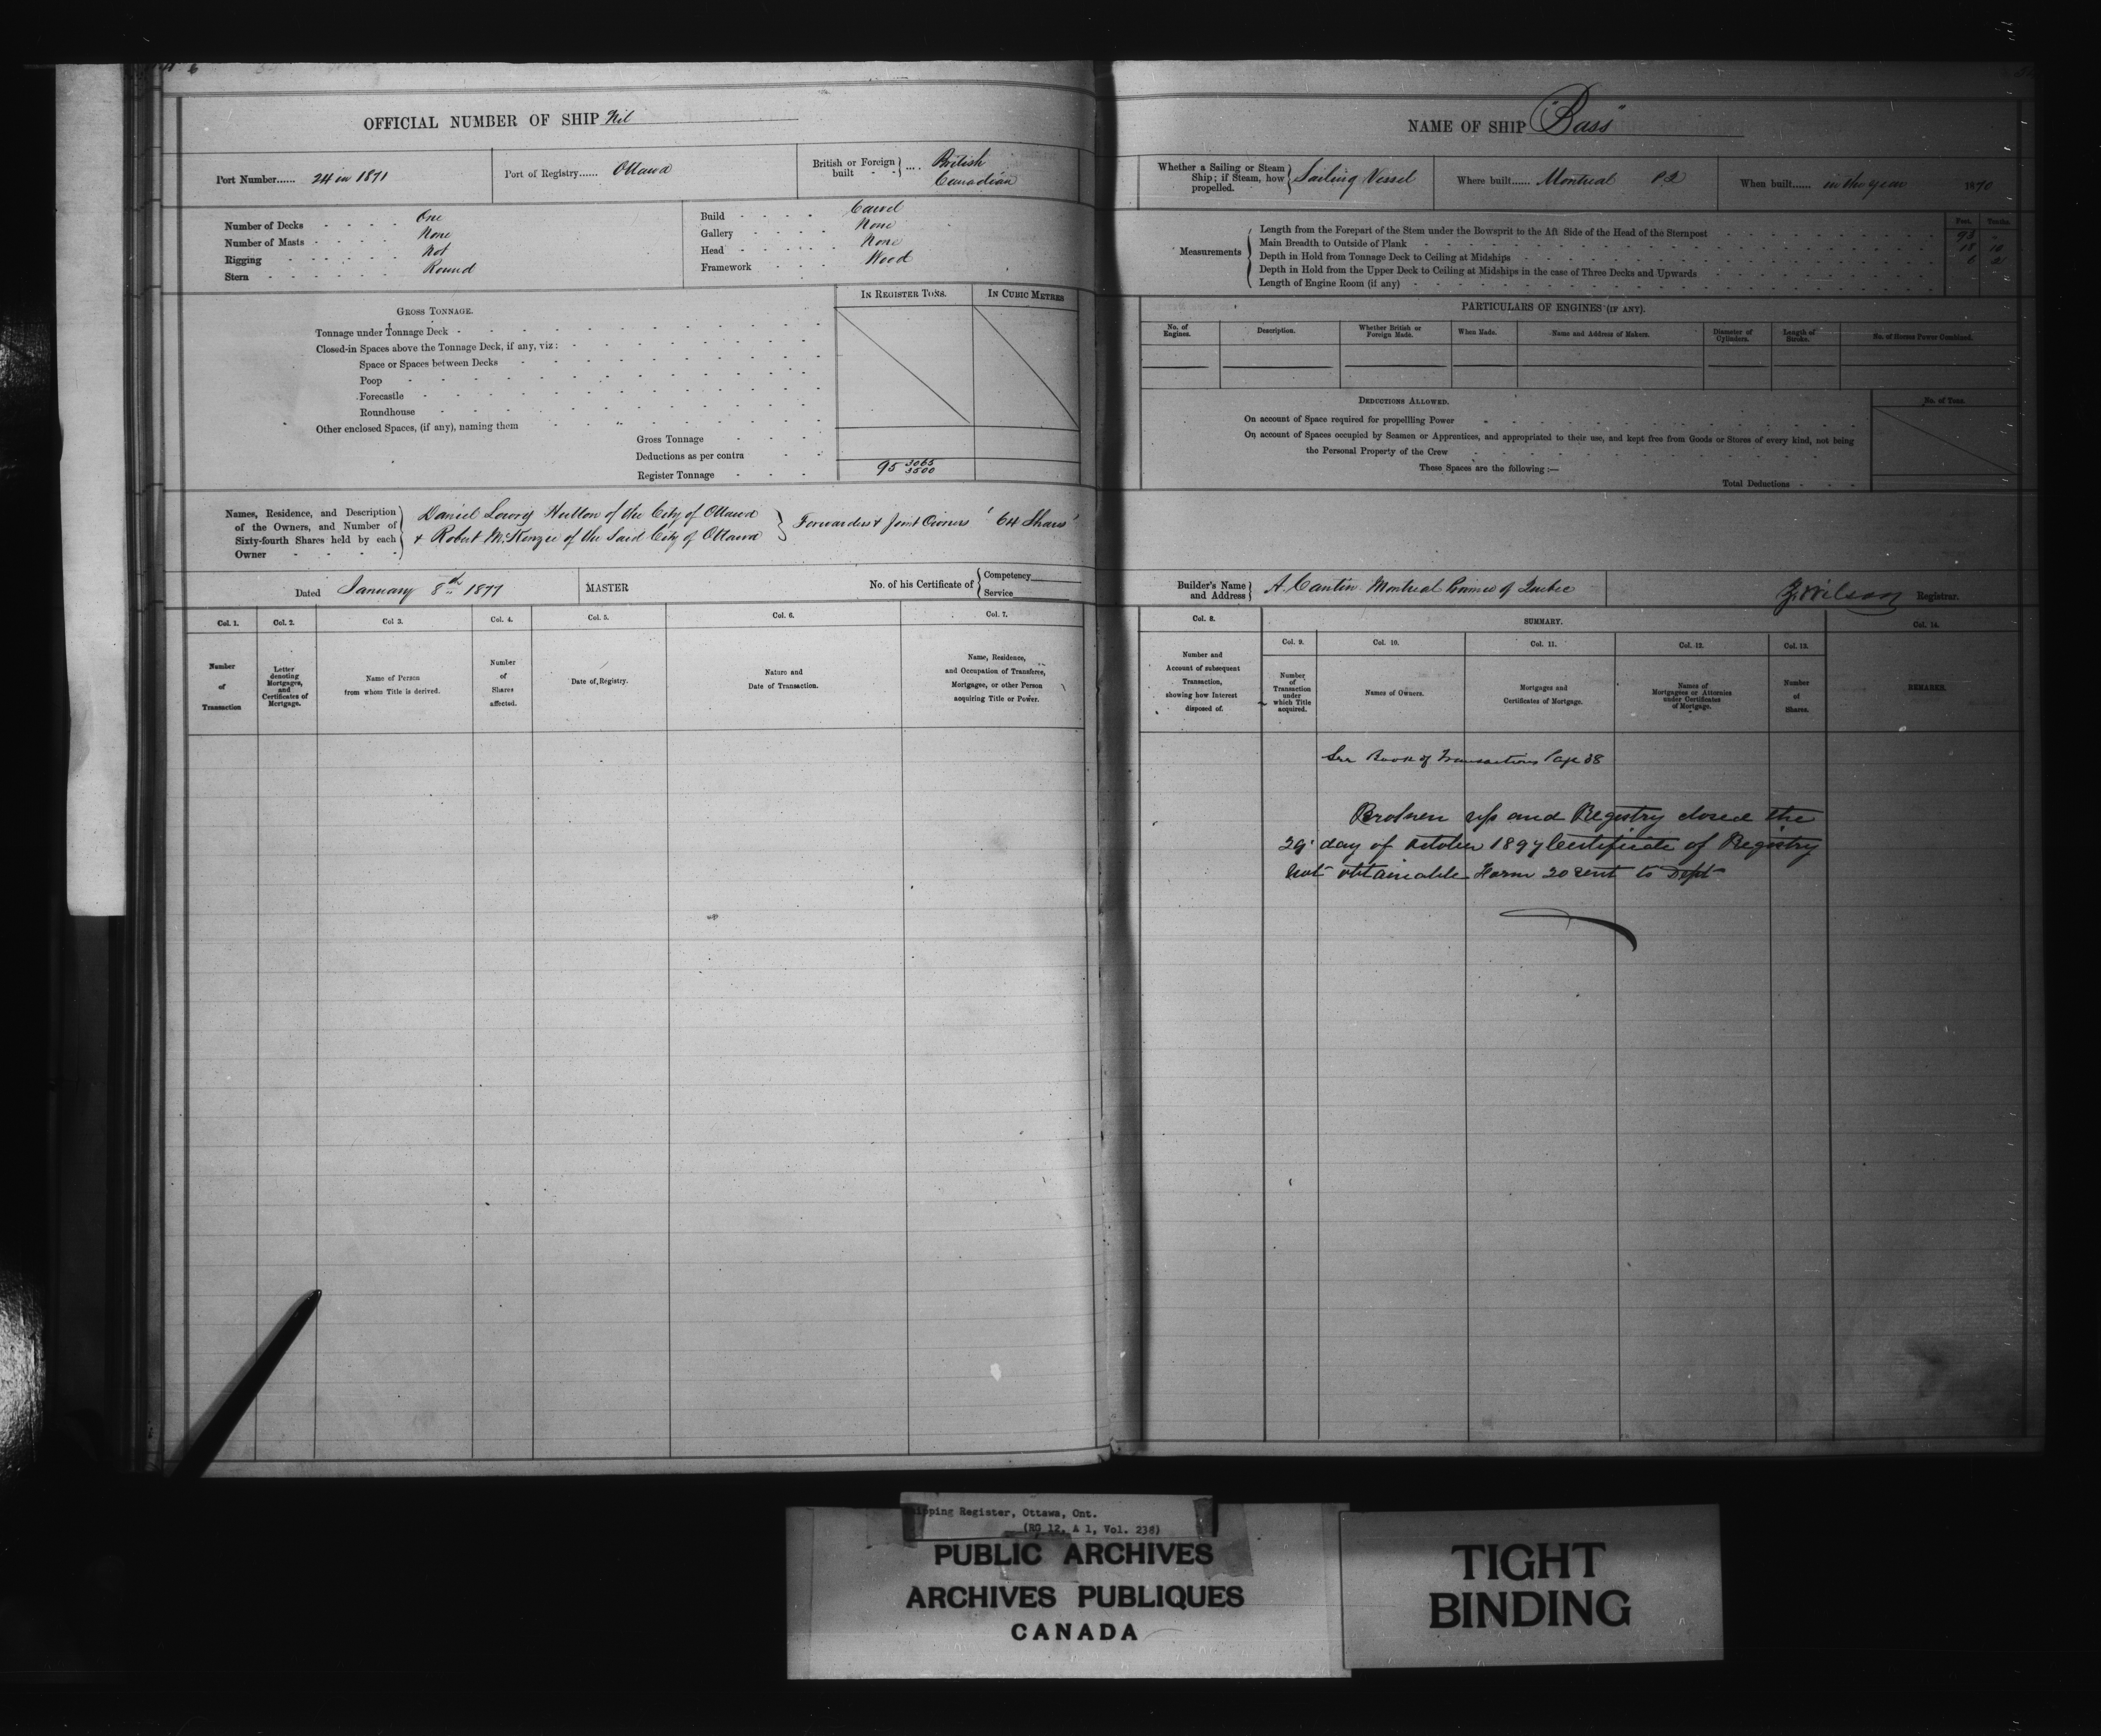 OFFICIAL NUMBER OF SHIP Nil
Port Number...... 24 in 1871
Port of Registry...... Ottawa
British or Foreign built - - .... British Canadian
Number of Decks - - - - One
Number of Masts - - - - None
Rigging - - - - - Not
Stern - - - - - - Round
Build - - - - Carvel
Gallery - - - - None
Head - - - - - None
Framework - - - Wood
IN REGISTER TONS.
IN CUBIC METRES
GROSS TONNAGE.
Tonnage under Tonnage Deck
Closed-in Spaces above the Tonnage Deck, if any, viz:
Space or Spaces between Decks
Poop
Forecastle
Roundhouse
Other enclosed Spaces, (if any), naming them
Gross Tonnage
Deductions as per contra
Register Tonnage 95 3065/3500
Names, Residence, and Description of the Owners, and Number of Sixty-fourth Shares held by each Owner
Daniel Lowry Hutton of the City of Ottawa
& Robert McKenzie of the Said City of Ottawa } Forwarders & Joint Owners "64 Shares"
Dated January 8th 1877
MASTER
No. of his Certificate of { Competency
Service
Col. 1.
Number
of
Transaction
Col. 2.
Letter
denoting
Mortgages,
and
Certificates of
Mortgage.
Col 3.
Name of Person
from whom Title is derived.
Col. 4.
Number
of
Shares
affected.
Col. 5.
Date of Registry.
Col. 6.
Nature and
Date of Transaction.
Col. 7.
Name, Residence,
and Occupation of Transferee,
Mortgagee, or other Person
acquiring Title or Power.
NAME OF SHIP "Bass"
Whether a Sailing or Steam Ship; if Steam, how propelled. } Sailing Vessel
Where built...... Montreal P Q
When built...... in the year 1870
Measurements
Feet. Tenths.
Length from the Forepart of the Stem under the Bowsprit to the Aft Side of the Head of the Sternpost 93 -
Main Breadth to Outside of Plank 18 10
Depth in Hold from Tonnage Deck to Ceiling at Midships 6 2
Depth in Hold from the Upper Deck to Ceiling at Midships in the case of Three Decks and Upwards
Length of Engine Room (if any)
PARTICULARS OF ENGINES (IF ANY).
No. of Engines.
Description.
Whether British or Foreign Made.
When Made.
Name and Address of Makers.
Diameter of Cylinders.
Length of Stroke.
No. of Horses Power Combined.
DEDUCTIONS ALLOWED.
No. of Tons.
On account of Space required for propellling Power
On account of Spaces occupied by Seamen or Apprentices, and appropriated to their use, and kept free from Goods or Stores of every kind, not being
the Personal Property of the Crew
These Spaces are the following:—
Total Deductions
Builder's Name and Address } A. Cantin Montreal Province of Quebec
Z. Wilson Registrar.
Col. 8.
Number and
Account of subsequent
Transaction,
showing how Interest
disposed of.
SUMMARY.
Col. 9.
Number
of
Transaction
under
which Title
acquired.
Col. 10.
Names of Owners.
Col. 11.
Mortgages and
Certificates of Mortgage.
Col. 12.
Names of
Mortgagees or Attornies
under Certificates
of Mortgage.
Col. 13.
Number
of
Shares.
Col. 14.
REMARKS.
See Book of Transactions Page 38
Broken up and Registry closed the
29 day of October 1897 Certificate of Registry
not obtainable Form 20 sent to Dept
Shipping Register, Ottawa, Ont.
(RG 12, A 1, Vol. 238)
PUBLIC ARCHIVES
ARCHIVES PUBLIQUES
CANADA
TIGHT
BINDING